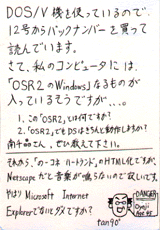 DOS/V機を使っているので、
12号からバックナンバーを買って
読んでいます。
さて、私のコンピュータには
「OSR2のWindows」なるものが
入っているそうですが…。
1. この「OSR2」とは何ですか?
2. 「OSR2」でもDSはきちんと動作しますか?
教えて下さい。
HTML化ですが、
Netscapeだと音楽が鳴らないので寂しいです。
やはりMicrosoft Internet
Explorerでないとダメですか?
DANGER
Oyaji
Age 45
tan90°